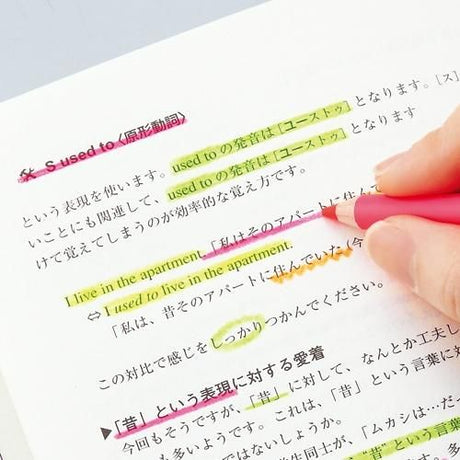 S used to 〈原形動詞〉
という表現を使います。used to の発音は[ユーストゥ]となります。[ス]
いことにも関連して、used to の発音は[ユーストゥ]となります
けて覚えてしまうのが効率的な覚え方です。
I live in the apartment.「私はそのアパートに住んで
⇔ I used to live in the apartment.
「私は、昔そのアパートに住んでいた(今
この対比で感じをしっかりつかんでください。
▶「昔」という表現に対する愛着
今回もそうですが、「昔」に対して、なんとか工夫し
も多いようです。これは、「昔」という言葉に対
ではないしょうか。
生同士が、「ムカシは…だっ
"昔"という言葉